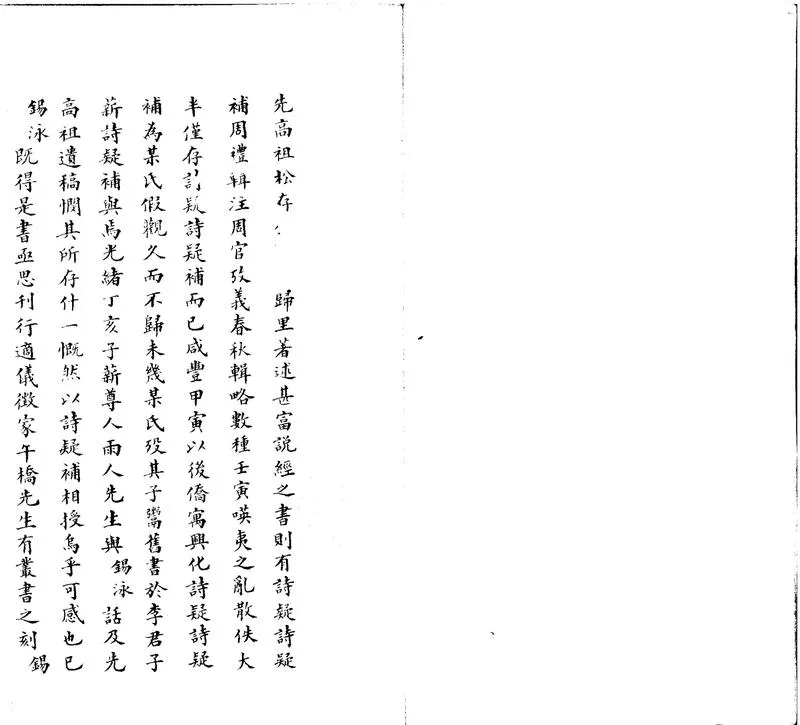 先高祖松存 歸里著述甚富說經之書則有詩疑詩疑
補周禮輯注周官攷義春秋輯略數種壬寅嘆夷之亂散佚大
半僅存詩疑詩疑補而已咸豐甲寅以後僑寓興化詩疑詩疑
補為某氏假觀久而不歸未幾某氏歿其子鬻舊書於李君子
薪詩疑補與焉光緒丁亥子薪尊人雨人先生與錫泳話及先
高祖遺稿憫其所存什一慨然以詩疑補相授烏乎可感也已
錫泳既得是書亟思刊行適儀徵家午橋先生有叢書之刻錫